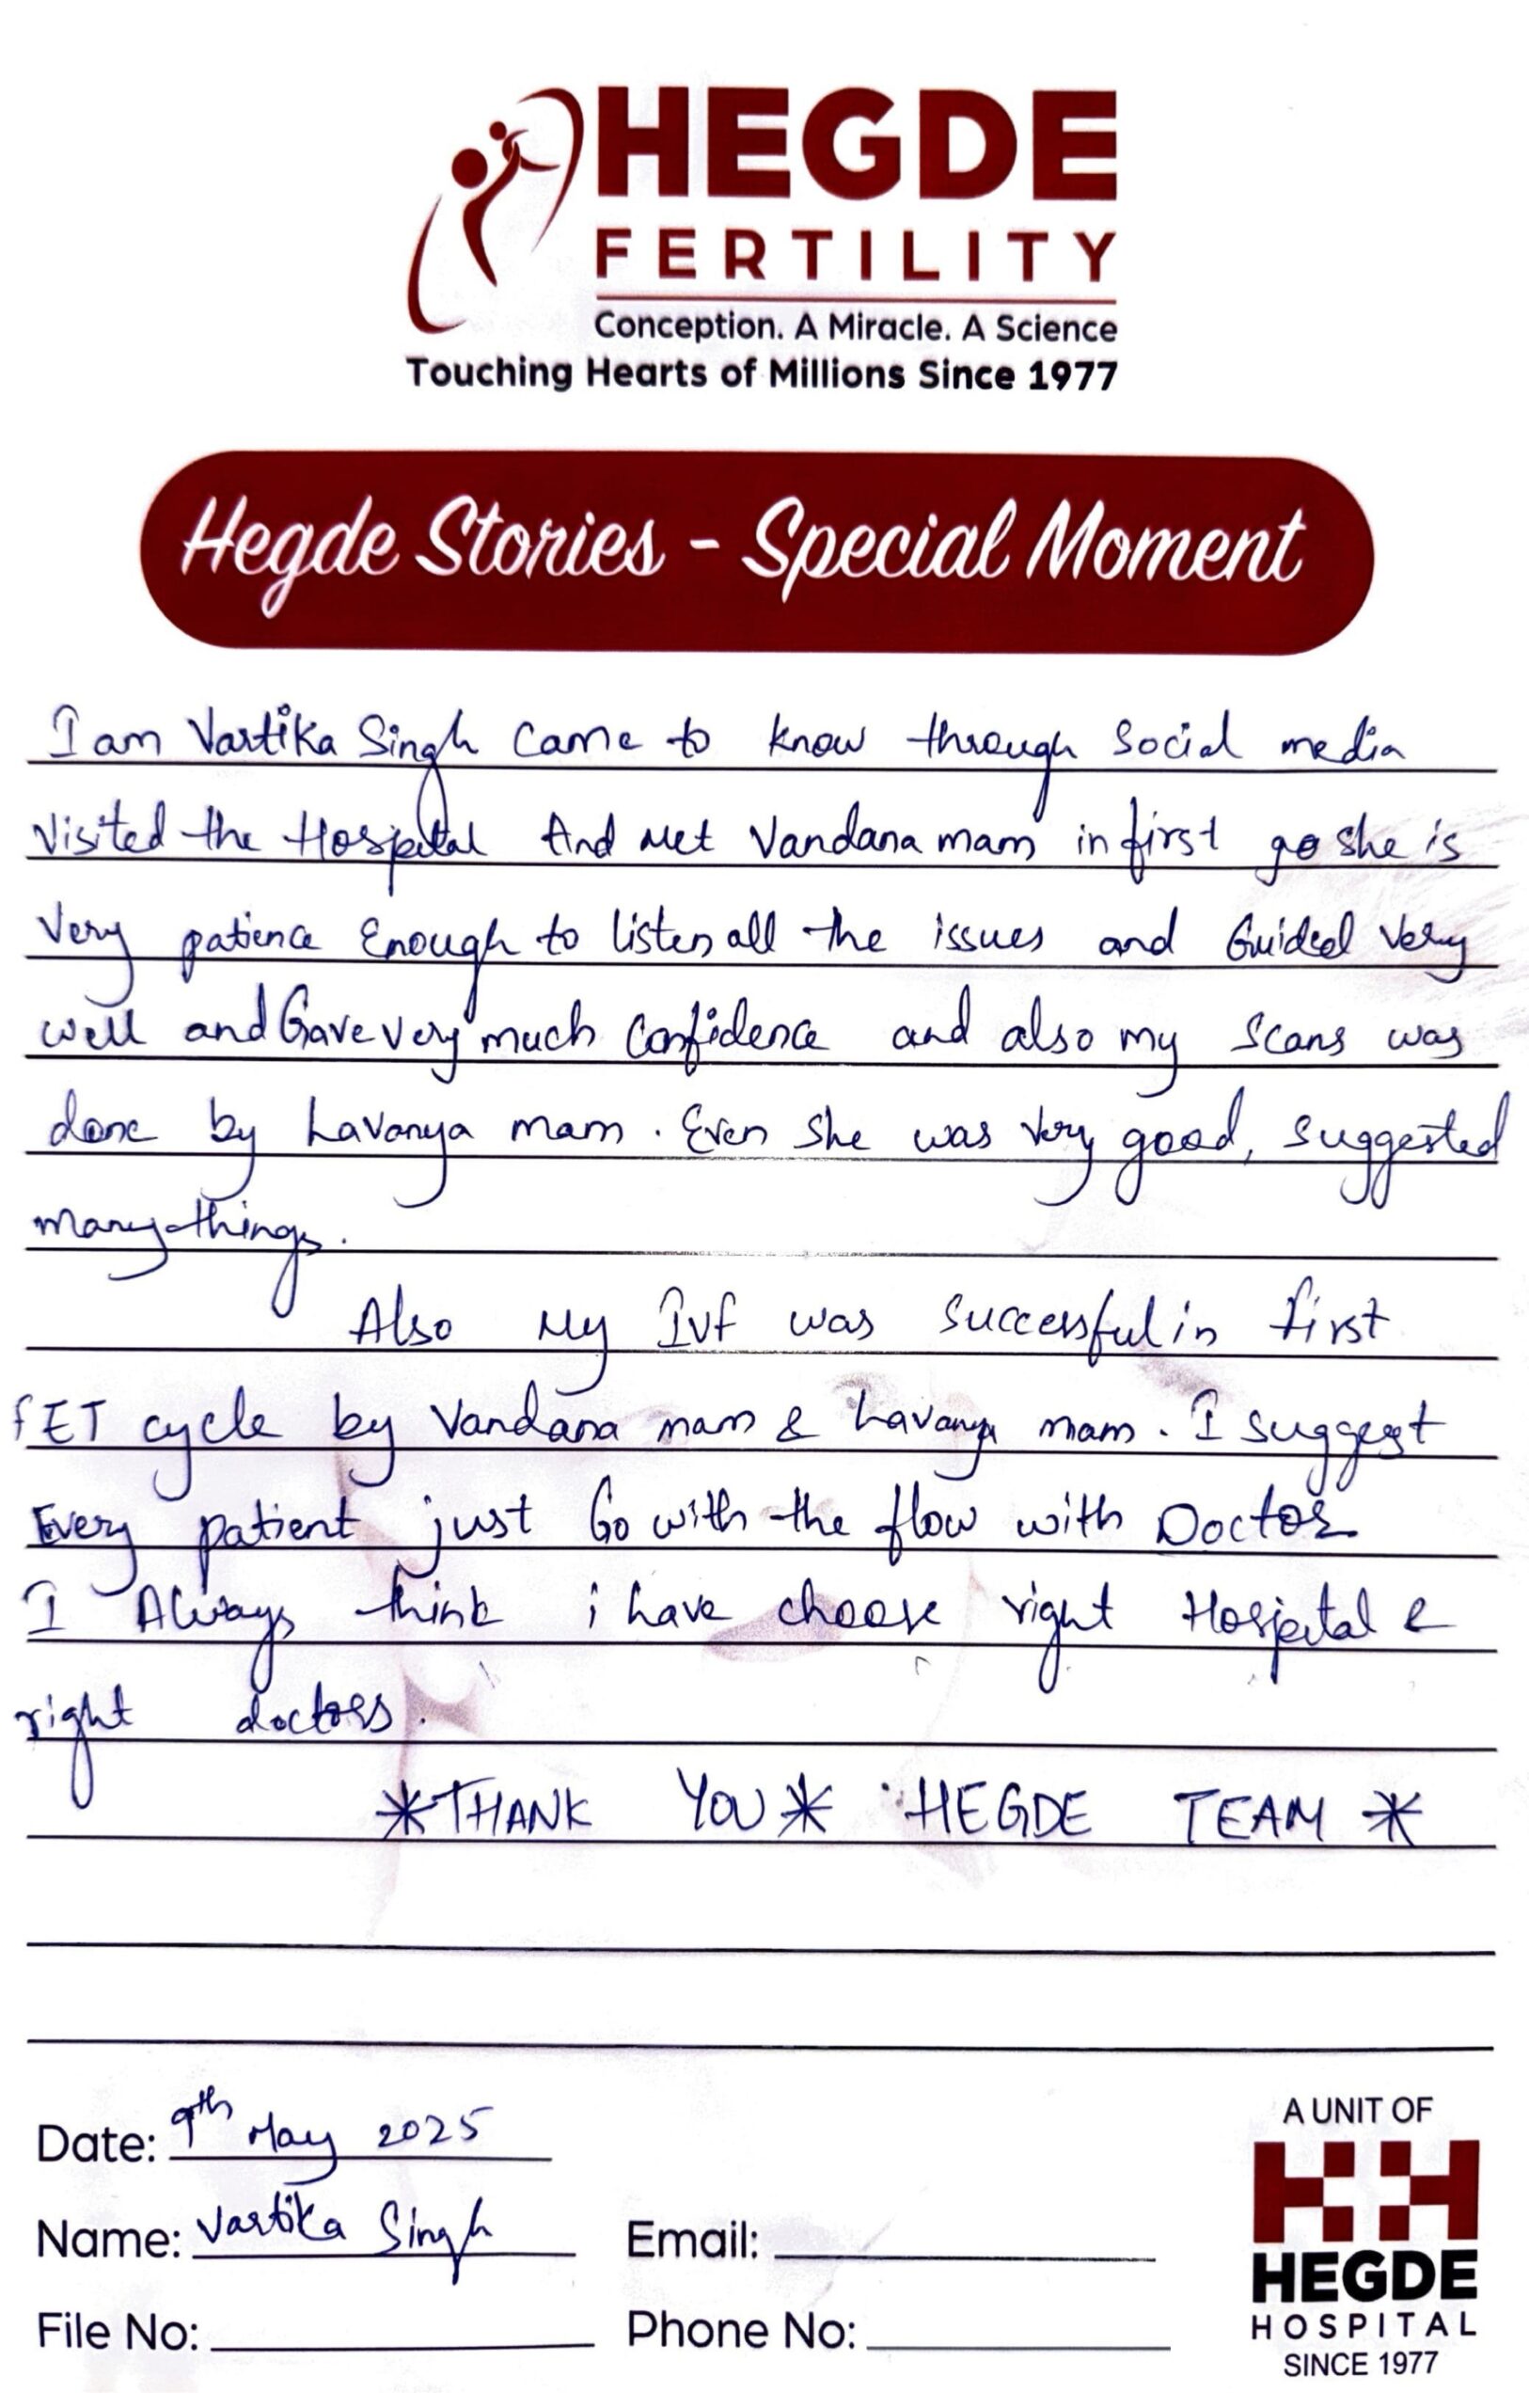 HEGDE
FERTILITY
Conception. A Miracle. A Science
Touching Hearts of Millions Since 1977
Hegde Stories - Special Moment
I am Vartika Singh Came to know through Social media
Visited the Hospital And Met Vandana mam in first go she is
Very patience Enough to listen all the issues and Guided Very
well and Gave very much Confidence and also my Scans was
done by Lavanya mam. Even she was very good, suggested
many things.
Also My Ivf was Successful in first
fET cycle by Vandana mam & Lavanya mam. I suggest
Every patient just Go with the flow with Doctor
I Always think i have choose right Hospital &
right doctors.
*THANK YOU* HEGDE TEAM *
Date: 9th May 2025
Name: Vartika Singh Email:
File No: Phone No:
A UNIT OF
HH
HEGDE
HOSPITAL
SINCE 1977